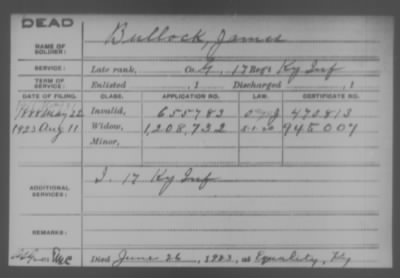 DEAD
NAME OF SOLDIER: Bullock, James
SERVICE: Late rank, Co. G, 17 Reg't Ky Inf
TERM OF SERVICE: Enlisted , 1 Discharged , 1
DATE OF FILING. CLASS. APPLICATION NO. LAW. CERTIFICATE NO.
1888 May 22 Invalid, 655783 473813
1923 Aug 11 Widow, 1,208,732 5-1-20 945007
Minor,
ADDITIONAL SERVICES: I. 17 Ky Inf
REMARKS:
Died June 26, 1923, at Equality, Ky